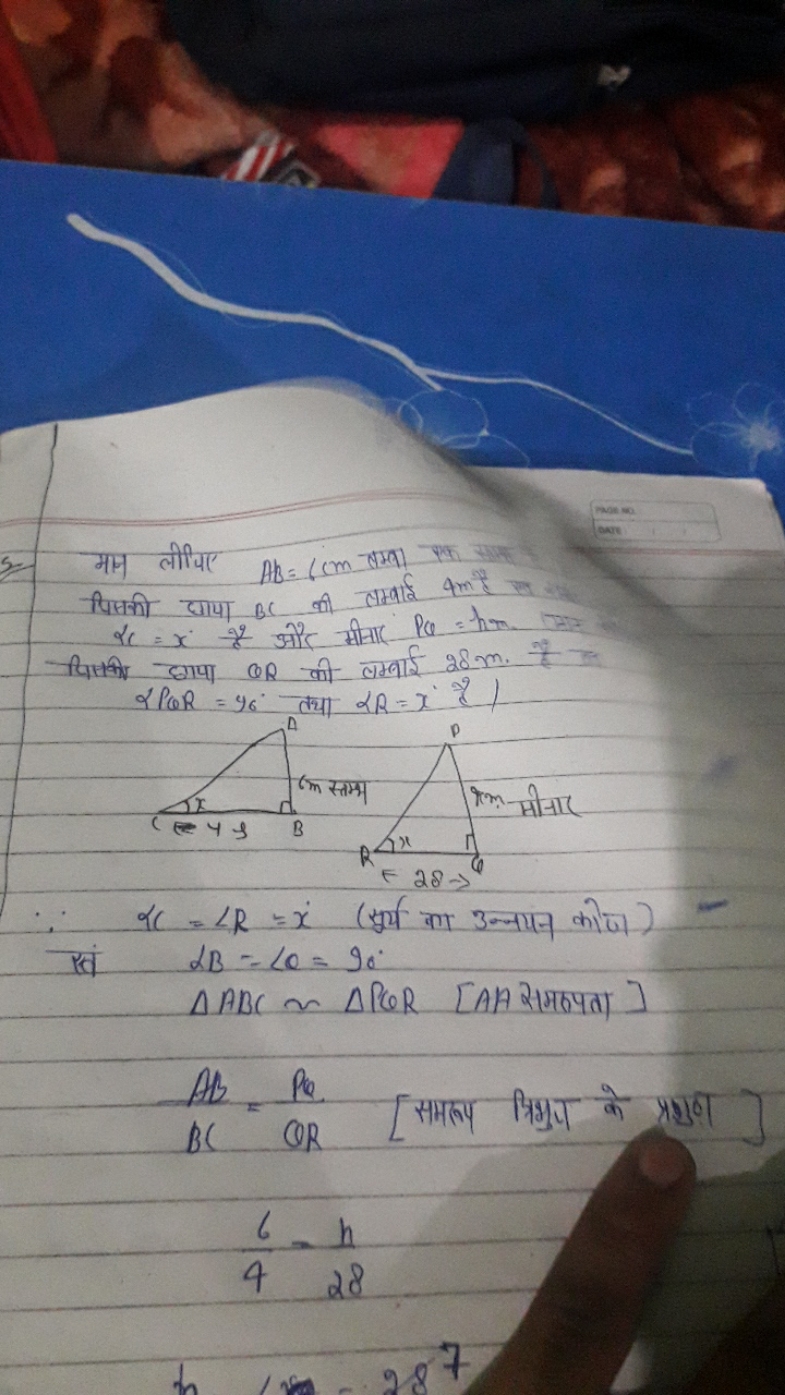 PAGE NO.
DATE
मान लीजिए AB = 6m लम्बा एक
जिसकी छाया BC की लम्बाई 4m है
∠C = x° है और मीनार PQ = hm
जिसकी छाया QR की लम्बाई 28m. है
∠PQR = 90° तथा ∠R = x° है।
A
P
6m स्तम्भ
hm मीनार
x
C
4
B
R
x
Q
← 28 →
∵ ∠C = ∠R = x° (सूर्य का उन्नयन कोण)
एवं ∠B = ∠Q = 90°
Δ ABC ~ Δ PQR [AA समरूपता]
AB/BC = PQ/QR [समरूप त्रिभुज के]
6/4 = h/28
28 7